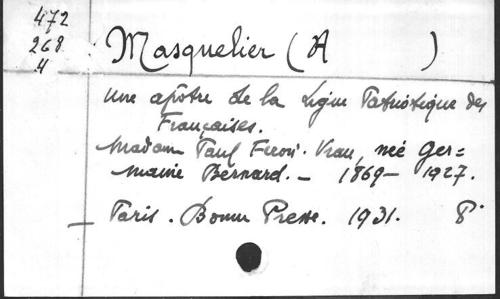 472
268
4
Masquelier (A )
une apôtre de la Ligue Patriotique des
Françaises.
Madam Paul Feron-Vrau, née Ger=
maine Bernard. - 1869- 1927.
Paris. Bonne Presse. 1931. 8°